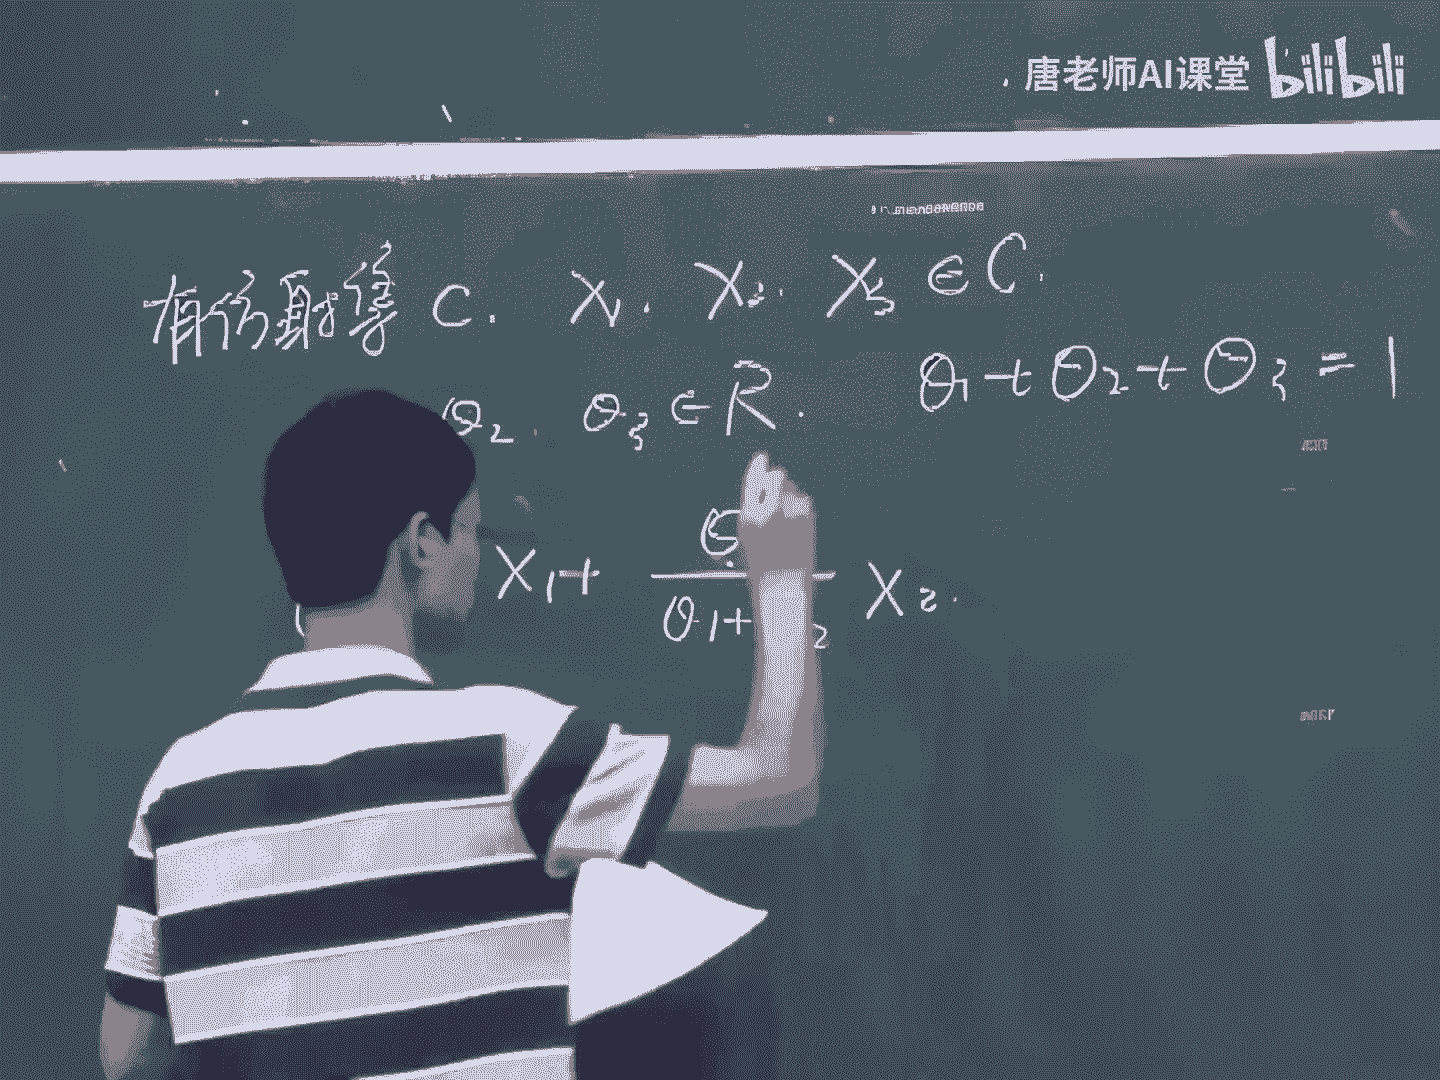 唐老师AI课堂 bilibili
有仿射集 C. X₁. X₂. X₃ ∈ C.
θ₂. θ₃ ∈ R. θ₁ + θ₂ + θ₃ = 1
X₁ + θ/(θ₁+ ₂) X₂.